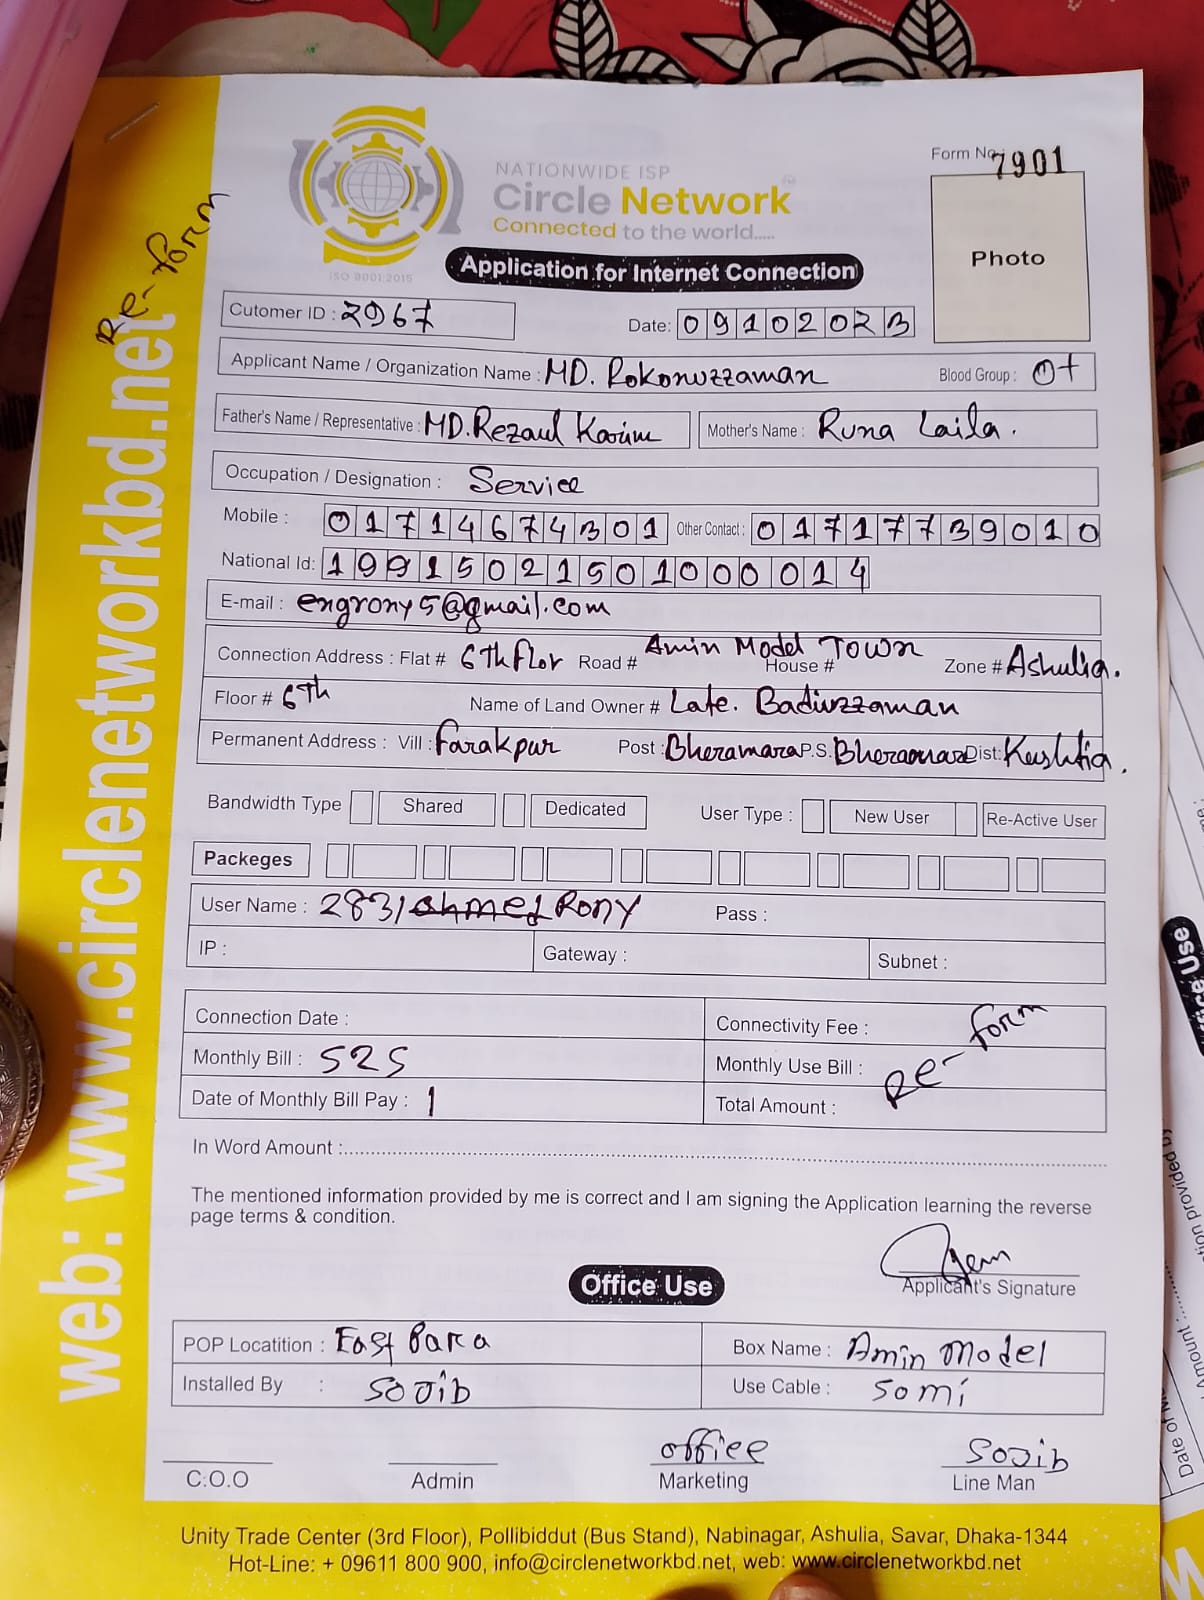 Form No: 7901
NATIONWIDE ISP
Circle Network
Connected to the world.....
ISO 9001:2015
Application for Internet Connection
Photo
Re-form
Cutomer ID : 2967
Date: 09102023
Applicant Name / Organization Name : MD. Rokonuzzaman Blood Group : O+
Father's Name / Representative : MD. Rezaul Karim Mother's Name : Runa Laila.
Occupation / Designation : Service
Mobile : 01714674301 Other Contact : 01717739010
National Id: 19915021501000014
E-mail : engrony5@gmail.com
Connection Address : Flat # 6th flor Road # Amin Model Town House # Zone # Ashulia.
Floor # 6th Name of Land Owner # Late. Badiuzzaman
Permanent Address : Vill : Farakpur Post : Bheramara P.S. Bheramara Dist: Kushtia.
Bandwidth Type Shared Dedicated User Type : New User Re-Active User
Packeges
User Name : 2831 Rony Pass :
IP : Gateway : Subnet :
Connection Date : Connectivity Fee :
Monthly Bill : 525 Monthly Use Bill : Re-form
Date of Monthly Bill Pay : 1 Total Amount :
In Word Amount :
The mentioned information provided by me is correct and I am signing the Application learning the reverse
page terms & condition.
Applicant's Signature
Office Use
POP Locatition : East Para Box Name : Amin Model
Installed By : Sojib Use Cable : 50 mi
office Sojib
C.O.O Admin Marketing Line Man
Unity Trade Center (3rd Floor), Pollibiddut (Bus Stand), Nabinagar, Ashulia, Savar, Dhaka-1344
Hot-Line: + 09611 800 900, info@circlenetworkbd.net, web: www.circlenetworkbd.net
web: www.circlenetworkbd.net
Use
tion provided by
Amount :
Date of M